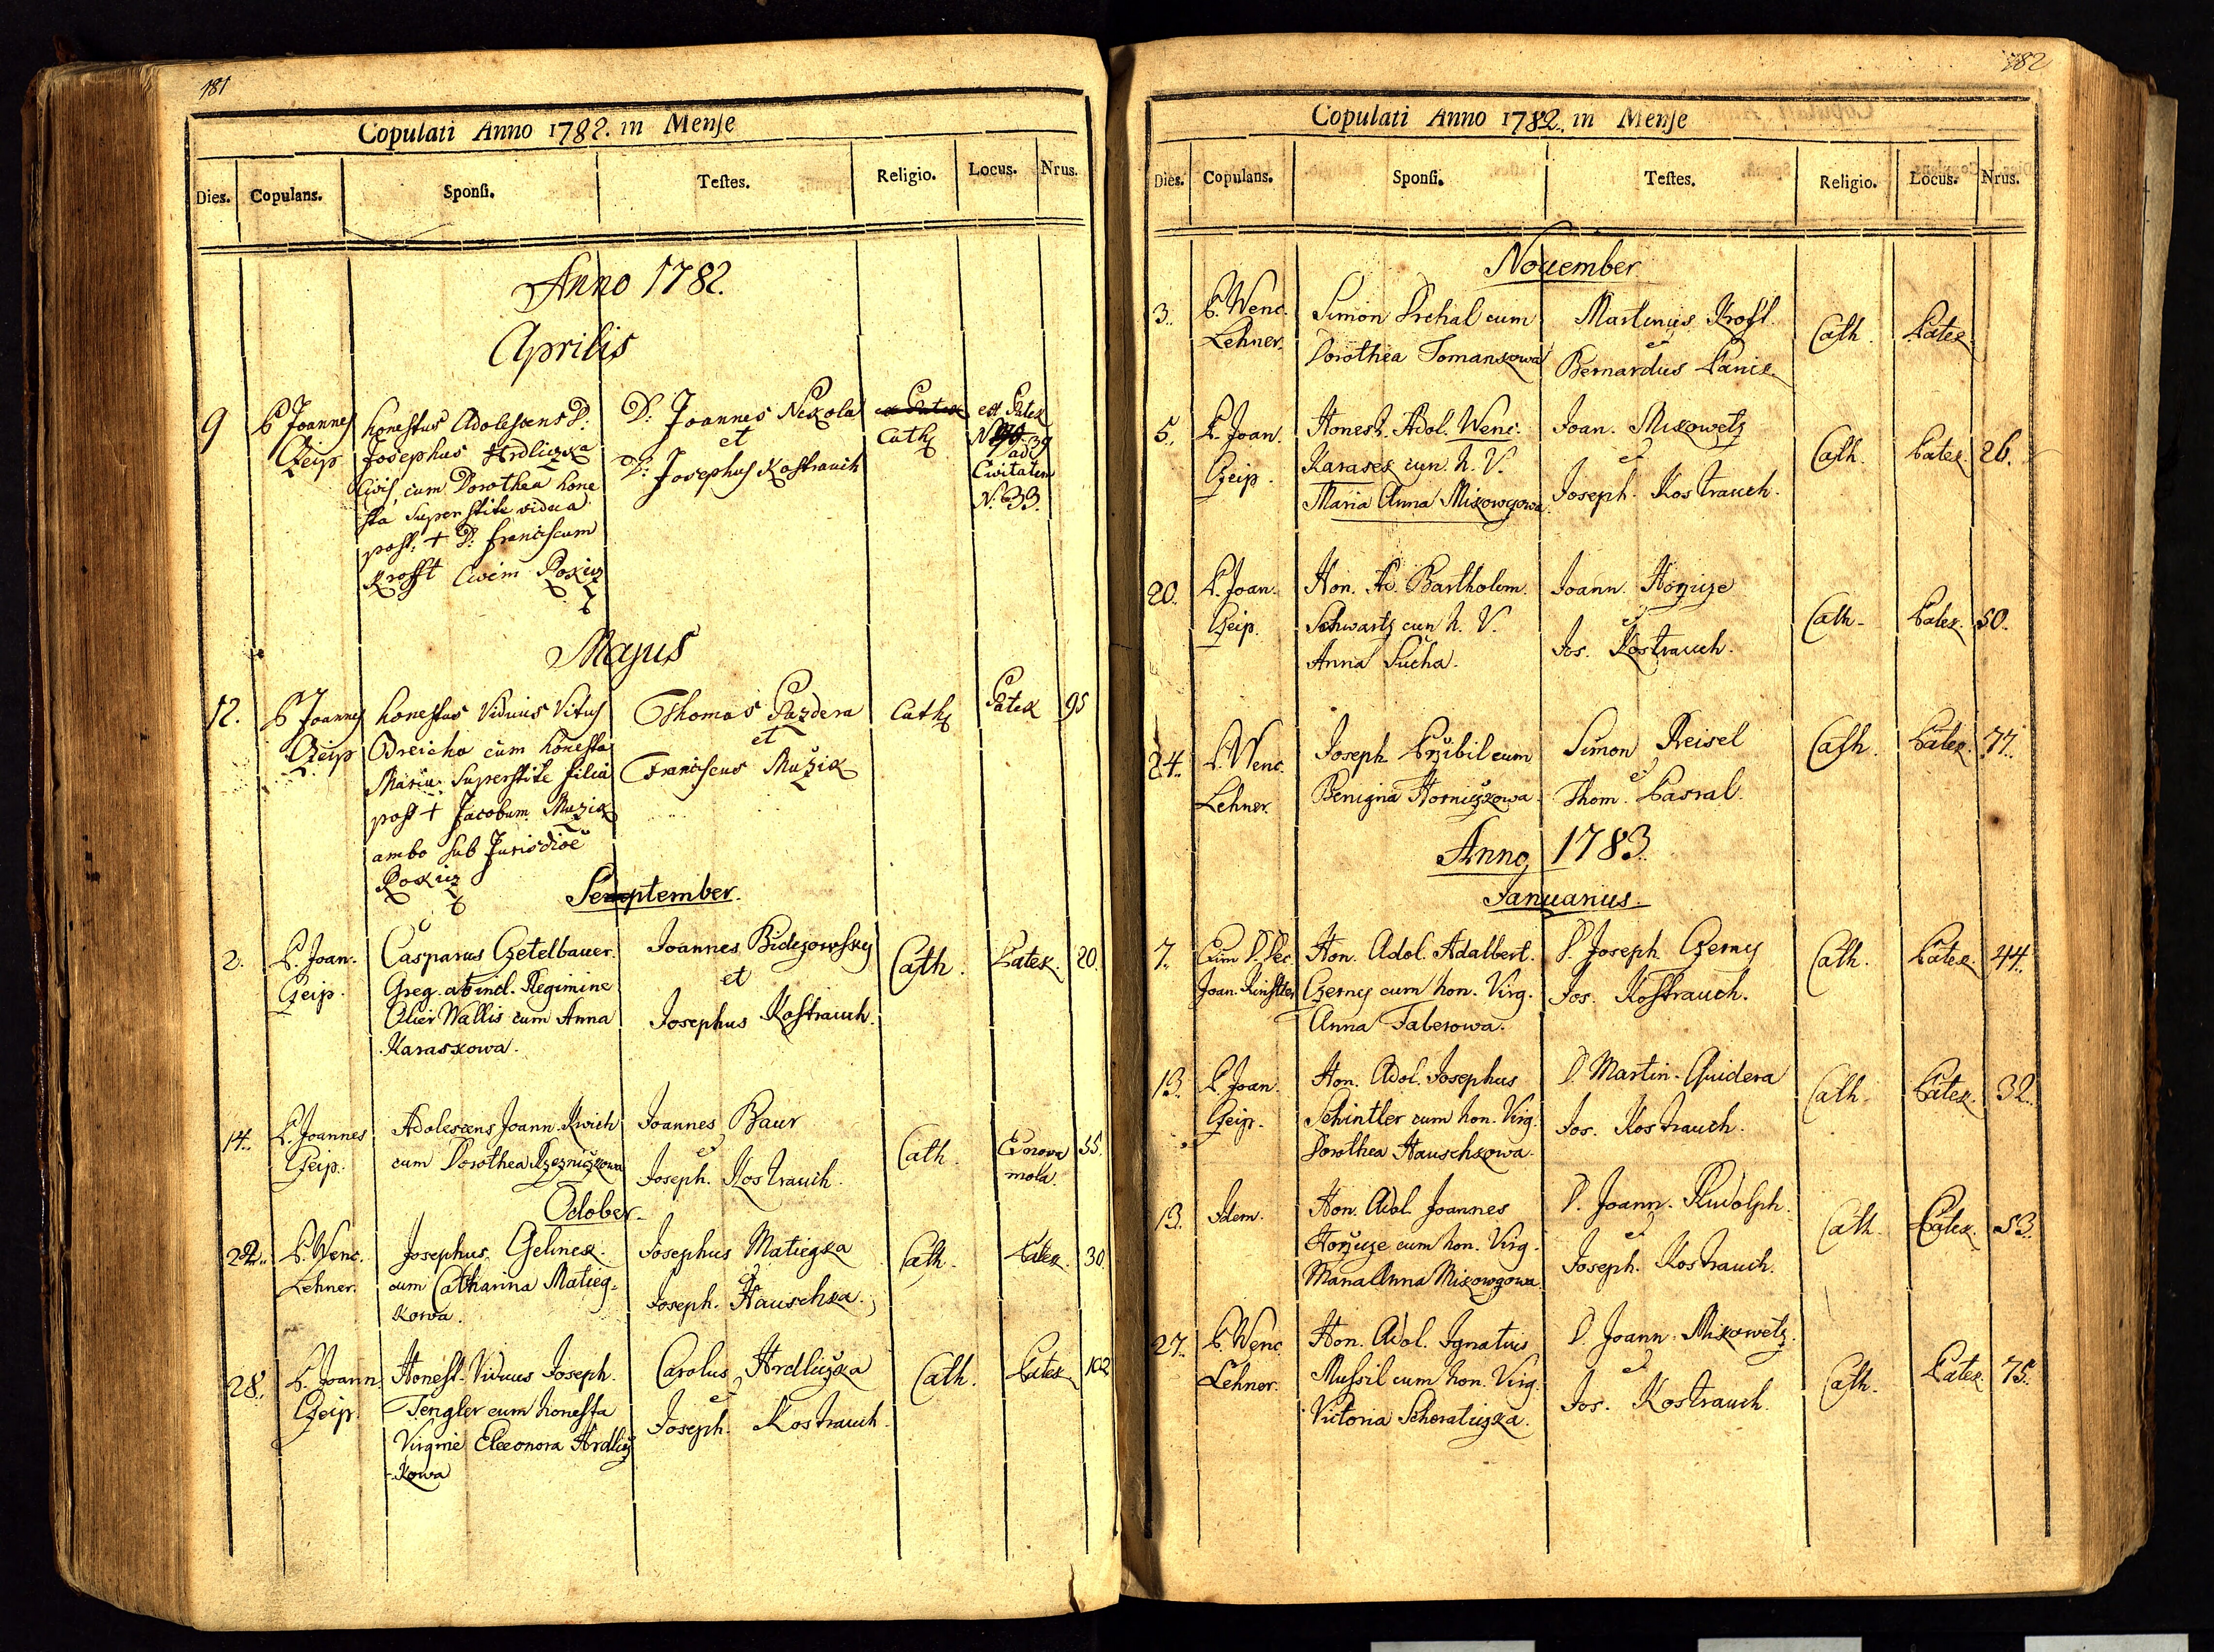 181
Copulati Anno 1782. in Mense
Dies. Copulans. Sponsi. Testes. Religio. Locus. Nrus.
Anno 1782.
Aprilis
9 P Joannes honestus Adolescens D: D: Joannes Nekola ex Patek est Patek
Czeip Josephus Hrdliczka et Cath N 39
Civis, cum Dorothea hone D: Josephus Kostrauch ad
sta Superstite vidua Civitatem
post + D: franciscum N. 33.
Krofft Civem Rokicz
Majus
12. P Joannes honestus Viduus Vitus Thomas Pazdera Cath Patek 95
Czeip Breicha cum honesta et
Maria Superstite filia Franciscus Muzik
post + Jacobum Muzik
ambo sub Jurisdioe
Rokicz
September.
2. P. Joan. Casparus Czetelbauer. Joannes Bidczowsky Cath. Patek. 20.
Czeip. Greg. ab incl. Regimine et
Olier Wallis cum Anna Josephus Kostrauch.
Karaskowa.
14. P. Joannes Adolescens Joann. Kwich Joannes Baur Cath. 55.
Czeip. cum Dorothea Rzezniczkowa et mola.
Joseph. Kostrauch.
October.
22. P. Wenc. Josephus Gelinek. Josephus Matiegka Cath. Patek. 30.
Lehner. cum Catharina Matieg- et
kowa. Joseph. Hauschka.
28. P. Joann. Honest. Viduus Joseph. Carolus Hrdliczka Cath. Patek 102
Czeip. Tengler cum honesta et
Virgine Eleonora Hrdlicz Joseph. Kostrauch.
-kowa
182
Copulati Anno 1782. in Mense
Dies. Copulans. Sponsi. Testes. Religio. Locus. Nrus.
November
3. P. Wenc. Simon Prchal cum Martinus Krofft. Cath. Patek
Lehner. Dorothea Tomankowa et
Bernardus Panic
5. P. Joan. Honest. Adol. Wenc. Joan. Mikowetz Cath. Patek. 26.
Czeip. Karasek cum h. V. et
Maria Anna Mikowczowa. Joseph. Kostrauch.
20. P. Joan. Hon. Ad. Bartholom. Joann. Horzicze Cath. Patek. 50.
Czeip. Schwartz cum h. V. et
Anna Sucha. Jos. Kostrauch.
24. P. Wenc. Joseph Przibil cum Simon Reisel Cath. Patek. 77.
Lehner. Benigna Horniczkowa. et
Thom. Pasral.
Anno 1783.
Januarius.
7. Exim D. Dec. Hon. Adol. Adalbert. D. Joseph Czerny Cath. Patek. 44.
Joan. Kinstler Czerny cum hon. Virg. Jos. Kostrauch.
Anna Faberowa.
13. P. Joan. Hon. Adol. Josephus D. Martin. Quidera Cath. Patek. 32.
Czeip. Schintler cum hon. Virg. Jos. Kostrauch.
Dorothea Hauschkowa.
13. Idem. Hon. Adol. Joannes D. Joann. Rudolph. Cath. Patek. 53.
Horzicze cum hon. Virg. et
Maria Anna Mikowczowa. Joseph. Kostrauch.
27. P. Wenc. Hon. Adol. Ignatius D. Joann. Mikowetz. Cath. Patek. 75.
Lehner. Mussil cum hon. Virg. et
Victoria Schoraticzka. Jos. Kostrauch.